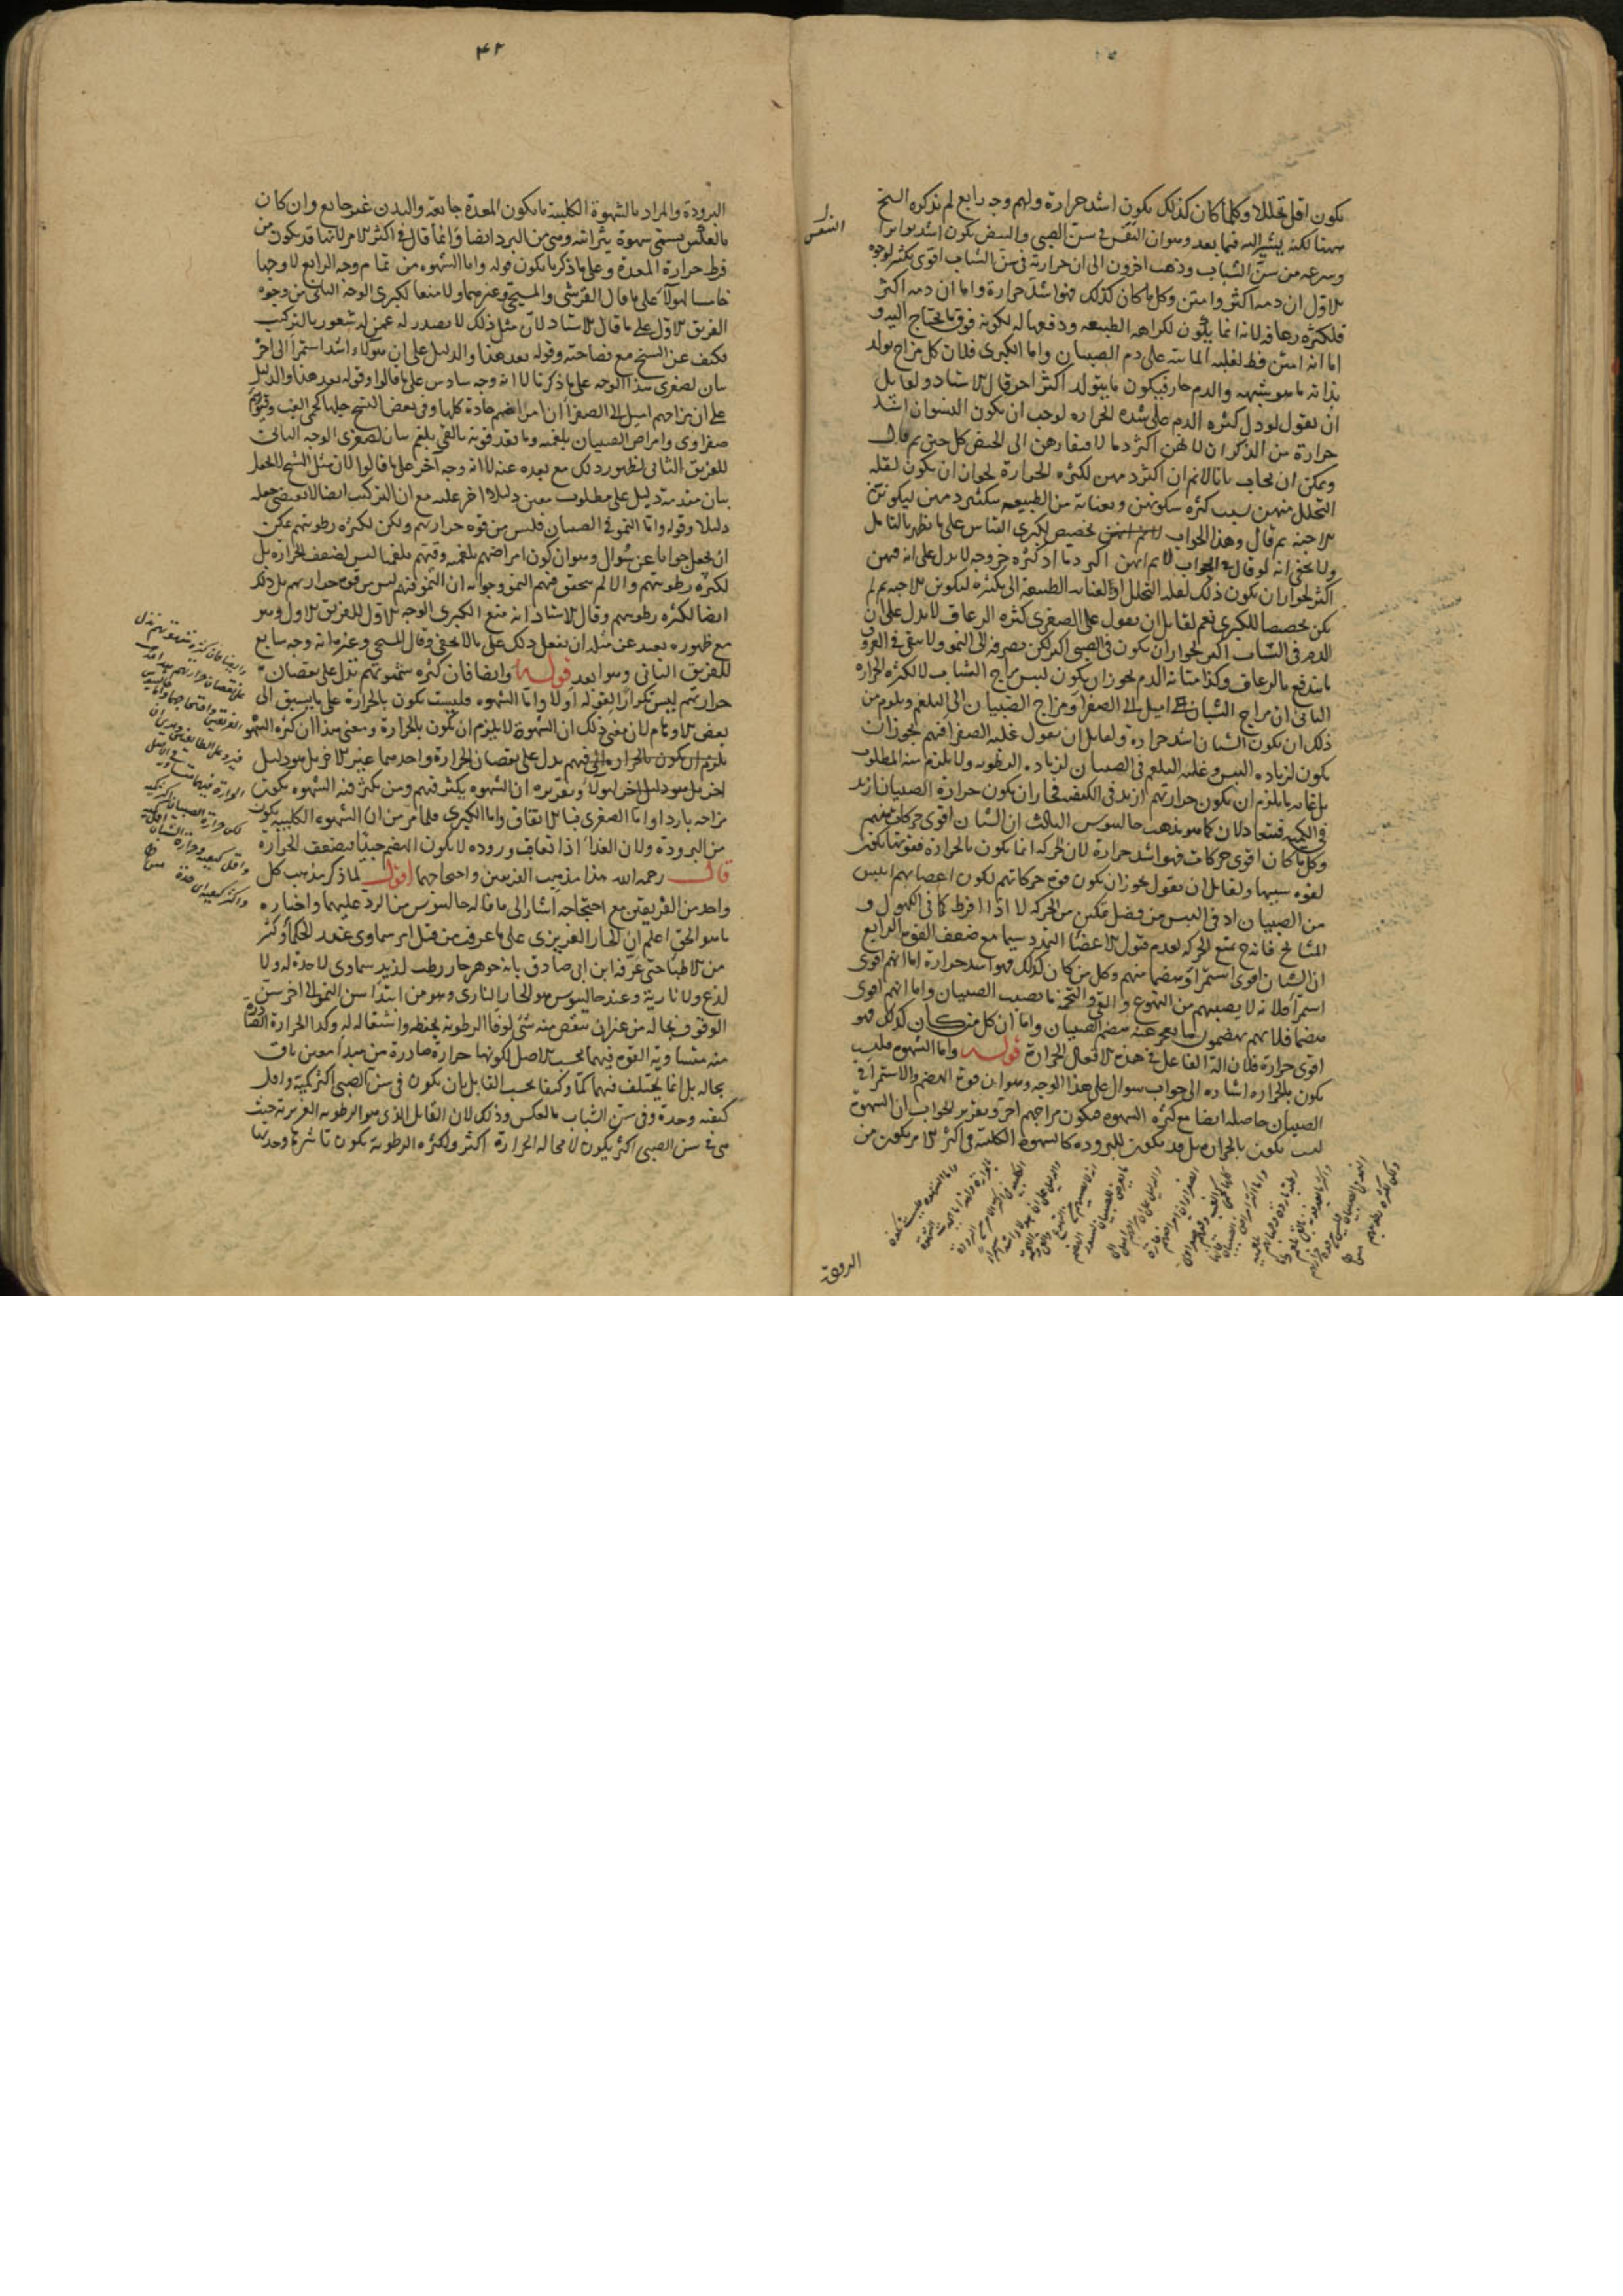 يكون اقل تحللا وكلما كان كذلك يكون اشد حرارة ولهم وجه رابع لم يذكره الشيخ
ههنا لكنه يشير اليه فيما بعد وهو ان النفس في سن الصبي والنبض يكون اشد تواترا
وسرعة من سن الشباب وذهب اخرون الى ان حرارته في سن الشباب اقوى بكثير لوجوه
الاول ان دمه اكثر وامتن وكل ما كان كذلك فهو اشد حرارة واما ان دمه اكثر
فلكثرة رعافه لانه انما يكون لكراهة الطبيعة ودفعها له لكونه فوق ما يحتاج اليه و
اما انه امتن فظ لغلبة المائية على دم الصبيان واما الكبرى فلان كل مزاج يولد
بذاته ما هو يشبهه والدم حار فيكون ما يتولد اكثر احر قال الاستاد ولقايل
ان يقول لو دل كثرة الدم على شدة الحرارة لوجب ان يكون النسوان اشد
حرارة من الذكران لانهن اكثر دما لافتقارهن الى الحيض كل حين ثم قال
ويمكن ان يجاب بانا لا نم ان اكثر دمهن لكثرة الحرارة لجواز ان يكون لقلة
التحلل منهن بسبب كثرة سكونهن وبعناية من الطبيعة بتكثير دمهن ليكون
الاجنة ثم قال وهذا الجواب تخصيص لكبرى القياس على ما يظهر بالتامل
ولا يخفى انه لو قال في الجواب لا نم انهن اكثر دما اذ كثرة خروجه لا يدل على انه فيهن
اكثر لجواز ان يكون ذلك لقلة التحلل او لعناية الطبيعة الى تكثيره لتكوين الاجنة ثم لم
يكن تخصيصا للكبرى نعم لقايل ان يقول على الصغرى كثرة الرعاف لا يدل على ان
الدم في الشباب اكثر لجواز ان يكون في الصبي اكثر لكن يصرفه الى النمو ولا يبقى في العروق
ما يندفع بالرعاف وكذا متانة الدم يجوز ان يكون ليبس مزاج الشباب لا لكثرة الحرارة
الثاني ان مزاج الشبان اميل الى الصفرا ومزاج الصبيان الى البلغم ويلزم من
ذلك ان يكون الشبان اشد حرارة ولقايل ان يقول غلبة الصفرا فيهم لجواز ان
يكون لزيادة اليبس وغلبة البلغم في الصبيان لزيادة الرطوبة ولا يلزم منه المطلوب
بل غاية ما يلزم ان يكون حرارتهم ازيد في الكيف فجاز ان يكون حرارة الصبيان ازيد
في الكمية فيتعادلان كما هو مذهب جالينوس الثالث ان الشبان اقوى حركات منهم
وكل ما كان اقوى حركات فهو اشد حرارة لان الحركة انما يكون بالحرارة فقوتها يكون
لقوة سببها ولقايل ان يقول يجوز ان يكون قوة حركاتهم لكون اعصابهم ايبس
من الصبيان اذ في اليبس من فضل تمكين من الحركة لا اذا افرط كما في الكهول و
المشايخ فانه ح يمنع الحركة لعدم قبول الاعضا التمدد سيما مع ضعف القوة الرابع
ان الشبان اقوى استمرا وهضما منهم وكل من كان كذلك فهو اشد حرارة اما انهم اقوى
استمرا فلانه لا يصيبهم من التهوع والقي والتخمة ما يصيب الصبيان واما انهم اقوى
هضما فلانهم يهضمون ما يعجز عنه هضم الصبيان واما ان كل من كان كذلك فهو
اقوى حرارة فلان الة الفاعل في هذه الافعال الحرارة قوله واما الشهوة فليت
يكون بالحرارة اشارة الى جواب سوال على هذا الوجه وهو ان قوة الهضم والاستمرا في
الصبيان حاصلة ايضا مع كثرة الشهوة فيكون مزاجهم احر وتقرير الجواب ان الشهوة
ليست يكون بالحرارة بل قد يكون للبرودة كالشهوة الكلبية في اكثر الامر يكون من
البرودة
۴۲
البرودة والمراد بالشهوة الكلبية ما يكون المعدة جايعة والبدن غير جايع وان كان
بالعكس يسمى شهوة بقرية وهي من البرد ايضا وانما قال في اكثر الامر لانها قد يكون من
فرط حرارة المعدة وعلى ما ذكر ما يكون قوله واما الشهوة من تمام وجه الرابع لا وجها
خامسا لهولا على ما قال القرشي والمسيحي وغيرهما ولا منعا لكبرى الوجه الثاني من وجوه
الفريق الاول على ما قال الاستاد لان مثل ذلك لا يصدر له عمن له شعور بالتركيب
فكيف عن الشيخ مع فصاحته وقوله بعد هذا والدليل على ان هولاء اشد استمرا الى اخر
بيان لصغرى هذا الوجه على ما ذكرنا لا انه وجه سادس على ما قالوا وقوله بعد هذا والدليل
على ان مزاجهم اميل الى الصفرا ان امراضهم حادة كلها وفي بعض النسخ جلها كحمى الغب وقيوهم
صفراوي وامراض الصبيان بلغمية وما يقذفونه بالقي بلغم بيان لصغرى الوجه الثاني
للفريق الثاني لظهور ذلك مع بعده عنه لا انه وجه اخر على ما قالوا لان مثل الشيخ لا يجعل
بيان مقدمة دليل على مطلوب معين دليلا اخر عليه مع ان التركيب ايضا لا يقتضي جعله
دليلا وقوله واما النمو في الصبيان فليس من قوة حرارتهم ولكن لكثرة رطوبتهم يمكن
ان يجعل جوابا عن سوال وهو ان كون امراضهم بلغمية وقيئهم بلغما ليس لضعف الحرارة بل
لكثرة رطوبتهم والا لم يتحقق فيهم النمو وجوابه ان النمو فيهم ليس من قوة حرارتهم بل ذلك
ايضا لكثرة رطوبتهم وقال الاستاد انه منع لكبرى الوجه الاول للفريق الاول وهو
مع ظهوره بعيد عن مثله ان يفعل ذلك على ما لا يخفى وقال المسيحي وغيره انه وجه سابع
للفريق الثاني وهو ابعد قوله وايضا فان كثرة شهوتهم تدل على نقصان
حرارتهم ليس تكرارا لقوله اولا واما الشهوة فليست يكون بالحرارة على ما يسبق الى
بعض الاوهام لان معنى ذلك ان الشهوة لا يلزم ان يكون بالحرارة ومعنى هذا ان كثرة الشهوة
فيهم يدل على نقصان الحرارة واحدهما غير الاخر بل هو دليل
اخر لهولا وتقريره ان الشهوة يكثر فيهم ومن يكثر فيه الشهوة يكون
مزاجه باردا واما الصغرى فبالاتفاق واما الكبرى فلما مر من ان الشهوة الكلبية يكون
من البرودة ولان الغذا اذا تعاقب وروده لا يكون الهضم جيدا فيضعف الحرارة
قال رحمه الله هذا مذهب الفريقين واحتجاجهما اقول لما ذكر مذهب كل
واحد من الفريقين مع احتجاجه اشار الى ما قاله جالينوس من الرد عليهما واخباره
ما هو الحق اعلم ان الحار الغريزي على ما عرفت من قبل امر سماوي عند الحكما وكثير
من الاطبا حتى عرفه ابن ابي صادق بانه جوهر حار رطب لذيذ سماوي لا حدة له ولا
لذع ولا نارية وعند جالينوس هو الحار الناري وهو من ابتدا سن النمو الى اخر سن
الوقوف بحاله من غير ان ينقص منه شئ لوفا الرطوبة بحفظه واشتعاله له وكذا الحرارة الصادرة
منه متساوية القوة فيهما بحسب الاصل لكونها حرارة صادرة من مبدا معين باق
بحاله بل انما يختلف فيهما كما وكيفا بحسب القابل بان يكون في سن الصبي اكثر كمية واقل
كيفية وحدة وفي سن الشباب بالعكس وذلك لان القابل الذي هو الرطوبة الغريزية حيث
هي في سن الصبي اكثر يكون لا محالة الحرارة اكثر ولكثرة الرطوبة يكون تاثيرها وحدتها